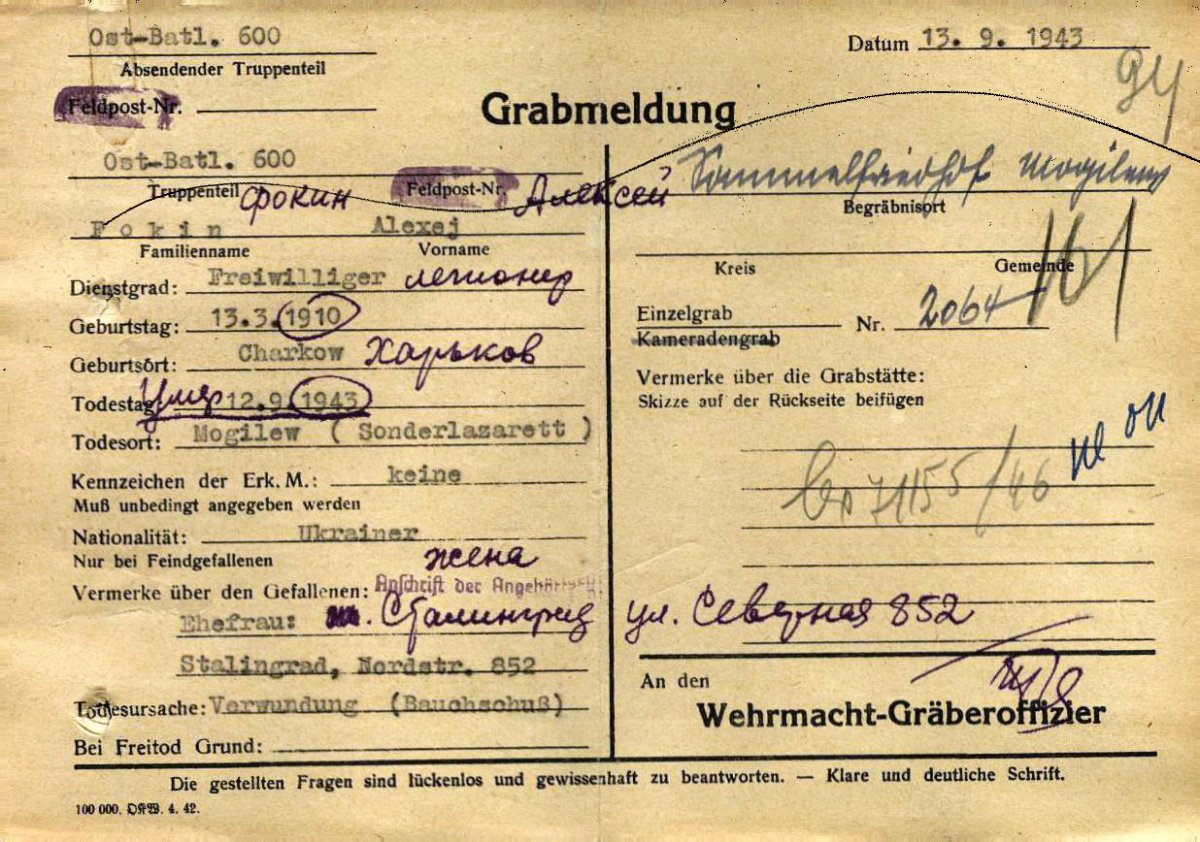 Ost-Batl. 600
Absendender Truppenteil
Datum 13. 9. 1943
Feldpost-Nr.
Grabmeldung
Ost-Batl. 600
Truppenteil Фокин Feldpost-Nr. Алексей
Fokin Alexej
Familienname Vorname
Dienstgrad: Freiwilliger легионер
Geburtstag: 13.3.1910
Geburtsort: Charkow Харьков
Todestag умер 12.9.1943
Todesort: Mogilew (Sonderlazarett)
Kennzeichen der Erk. M.: keine
Muß unbedingt angegeben werden
Nationalität: Ukrainer
Nur bei Feindgefallenen жена
Vermerke über den Gefallenen: Anschrift der Angehörigen
Ehefrau: Сталинград
Stalingrad, Nordstr. 852
Todesursache: Verwundung (Bauchschuß)
Bei Freitod Grund:
Sammelfriedhof Mogilew
Begräbnisort
Kreis Gemeinde
161
Einzelgrab
Kameradengrab
Nr. 2064
Vermerke über die Grabstätte:
Skizze auf der Rückseite beifügen
71155/46
ул. Северная 852
An den
Wehrmacht-Gräberoffizier
Die gestellten Fragen sind lückenlos und gewissenhaft zu beantworten. — Klare und deutliche Schrift.
100 000. OKW. 4. 42.